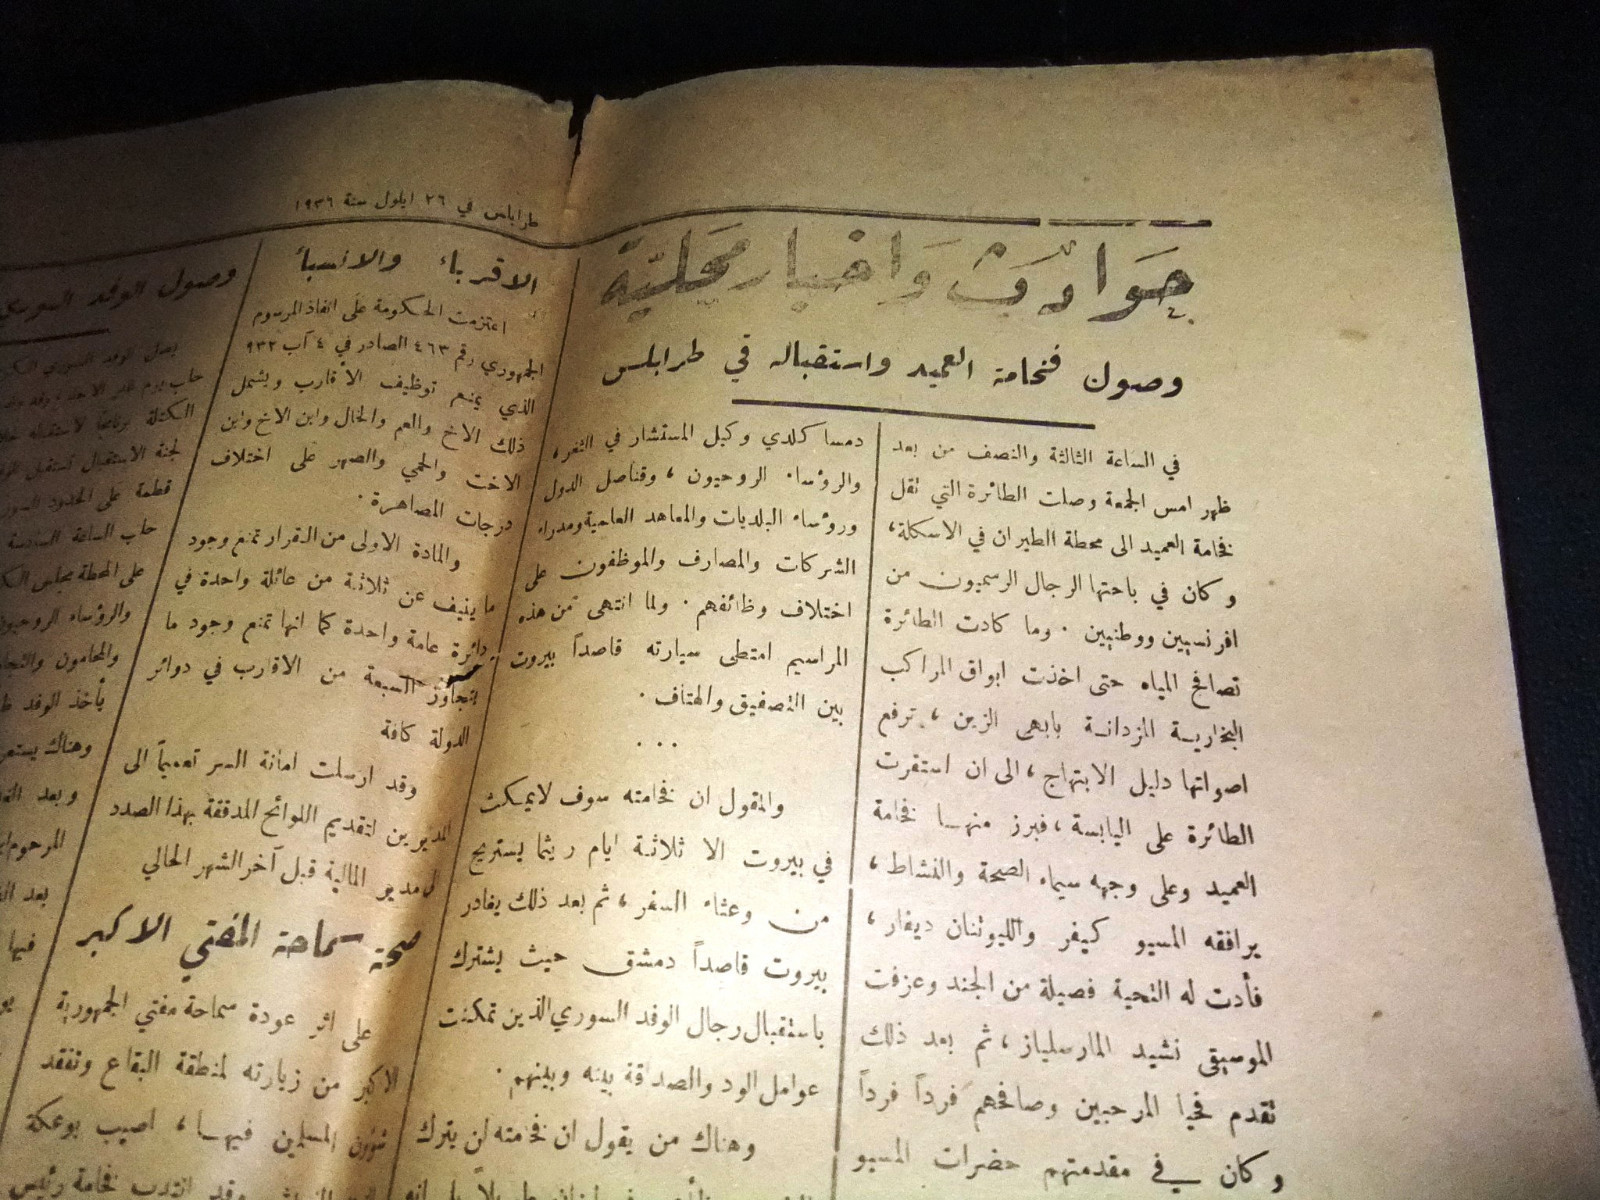 طرابلس في ٢٦ ايلول سنة ١٩٣٦
حَوَادِث وَاخبار مَحَليَّة
وصول فخامة العميد واستقباله في طرابلس
في الساعة الثالثة والنصف من بعد
ظهر امس الجمعة وصلت الطائرة التي تقل
فخامة العميد الى محطة الطيران في الاسكلة،
وكان في باحتها الرجال الرسميون من
افرنسيين ووطنيين . وما كادت الطائرة
تصافح المياه حتى اخذت ابواق المراكب
البخارية المزدانة بابهى الزين ، ترفع
اصواتها دليل الابتهاج ، الى ان استقرت
الطائرة على اليابسة ، فبرز منها فخامة
العميد وعلى وجهه سيماء الصحة والنشاط ،
يرافقه المسيو كيفر والليوتنان ديفار ،
فأدت له التحية فصيلة من الجند وعزفت
الموسيقى نشيد المارسلياز ، ثم بعد ذلك
تقدم فحيا المرحبين وصافحهم فرداً فرداً
وكان في مقدمتهم حضرات المسيو
دمسا كلدي وكيل المستشار في الثغر ،
والرؤساء الروحيون ، وقناصل الدول
ورؤساء البلديات والمعاهد العلمية ومدراء
الشركات والمصارف والموظفون على
اختلاف وظائفهم . ولما انتهى من هذه
المراسيم امتطى سيارته قاصداً بيروت
بين التصفيق والهتاف .
...
والمقول ان فخامته سوف لا يمكث
في بيروت الا ثلاثة ايام ريثما يستريح
من وعثاء السفر ، ثم بعد ذلك يغادر
بيروت قاصداً دمشق حيث يشترك
باستقبال رجال الوفد السوري الذين تمكنت
عوامل الود والصداقة بينه وبينهم .
وهناك من يقول ان فخامته لن يترك
الاقرباء والانسباء
اعتزمت الحكومة على انفاذ المرسوم
الجمهوري رقم ٤٦٣ الصادر في ٤ آب ٩٣٢
الذي يمنع توظيف الأقارب ويشمل
ذلك الاخ والعم والخال وابن الاخ وابن
الاخت والحمي والصهر على اختلاف
درجات المصاهرة .
والمادة الاولى من القرار تمنع وجود
ما ينيف عن ثلاثة من عائلة واحدة في
دائرة عامة واحدة كما انها تمنع وجود ما
يتجاوز السبعة من الاقارب في دوائر
الدولة كافة
وقد ارسلت امانة السر تعميماً الى
المديرين لتقديم اللوائح المدققة بهذا الصدد
المدير المالية قبل آخر الشهر الحالي
صحة سماحة المفتي الاكبر
على اثر عودة سماحة مفتي الجمهورية
الاكبر من زيارته لمنطقة البقاع وتفقد
شؤون المسلمين فيها ، اصيب بوعكة
وقد انتدب فخامة رئيس
وصول الوفد السوري
يصل الوفد السوري
حلب يوم غد الاحد
الكتلة برنامجاً لاستقباله
لجنة الاستقبال تستقبل
قطمة على الحدود
حلب الساعة السادسة
على المحطة مجلس
والرؤساء الروحيون
والمحامون والتجار
يأخذ الوفد
وهناك يستعرض
وبعد
المرحوم
بعد
فيها